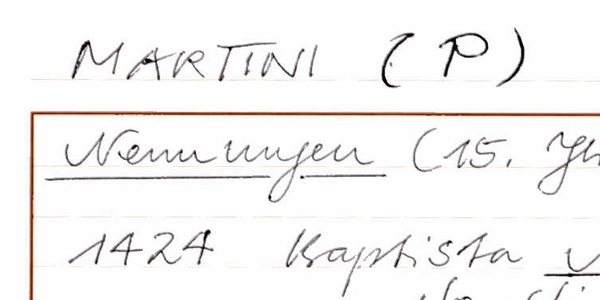 MARTINI (P)
Nennungen (15. Jh
1424 Baptista